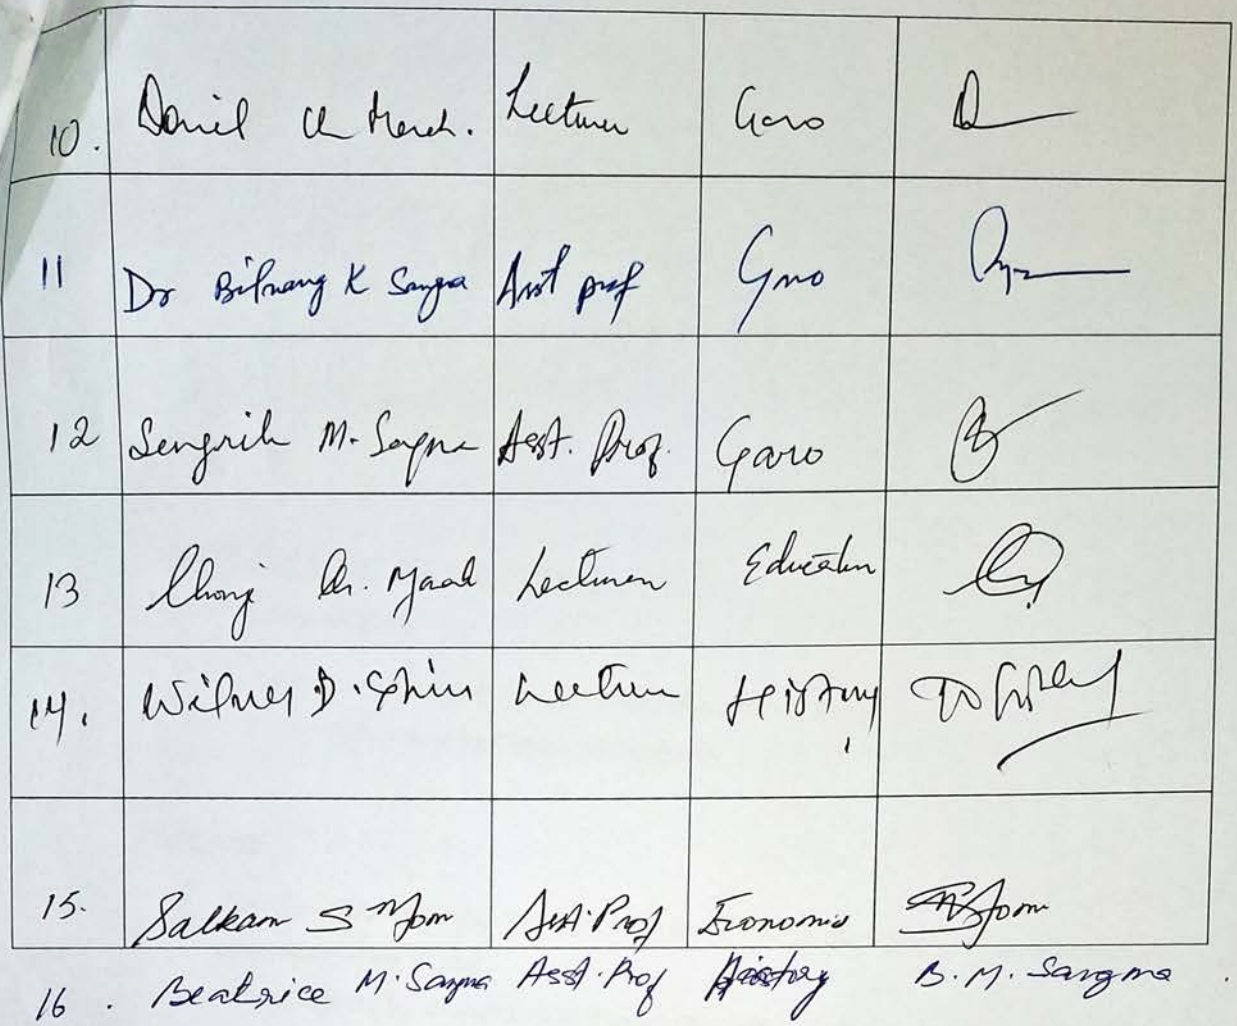 10. Daniel Ch Marak. Lecturer Garo
11 Dr Bilnang K Sangma Asst prof Garo
12 Sengrik M. Sangma Asst. Prof. Garo
13 Ch. Marak Lecturer Education
14. D. Shira Lecturer History
15. Salkam S Mom Asst. Prof Economics
16. Beatrice M. Sangma Asst. Prof History B. M. Sangma